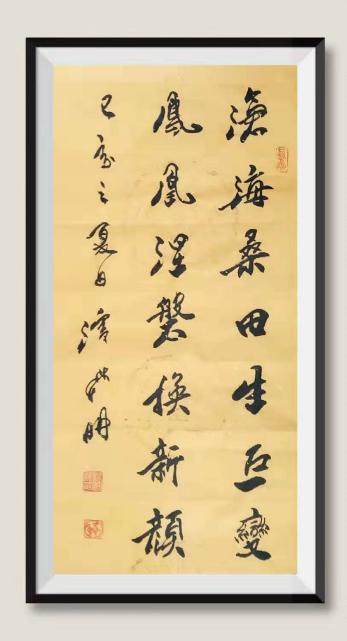 滄海桑田生巨變
鳳凰涅槃換新顏
己亥之夏日